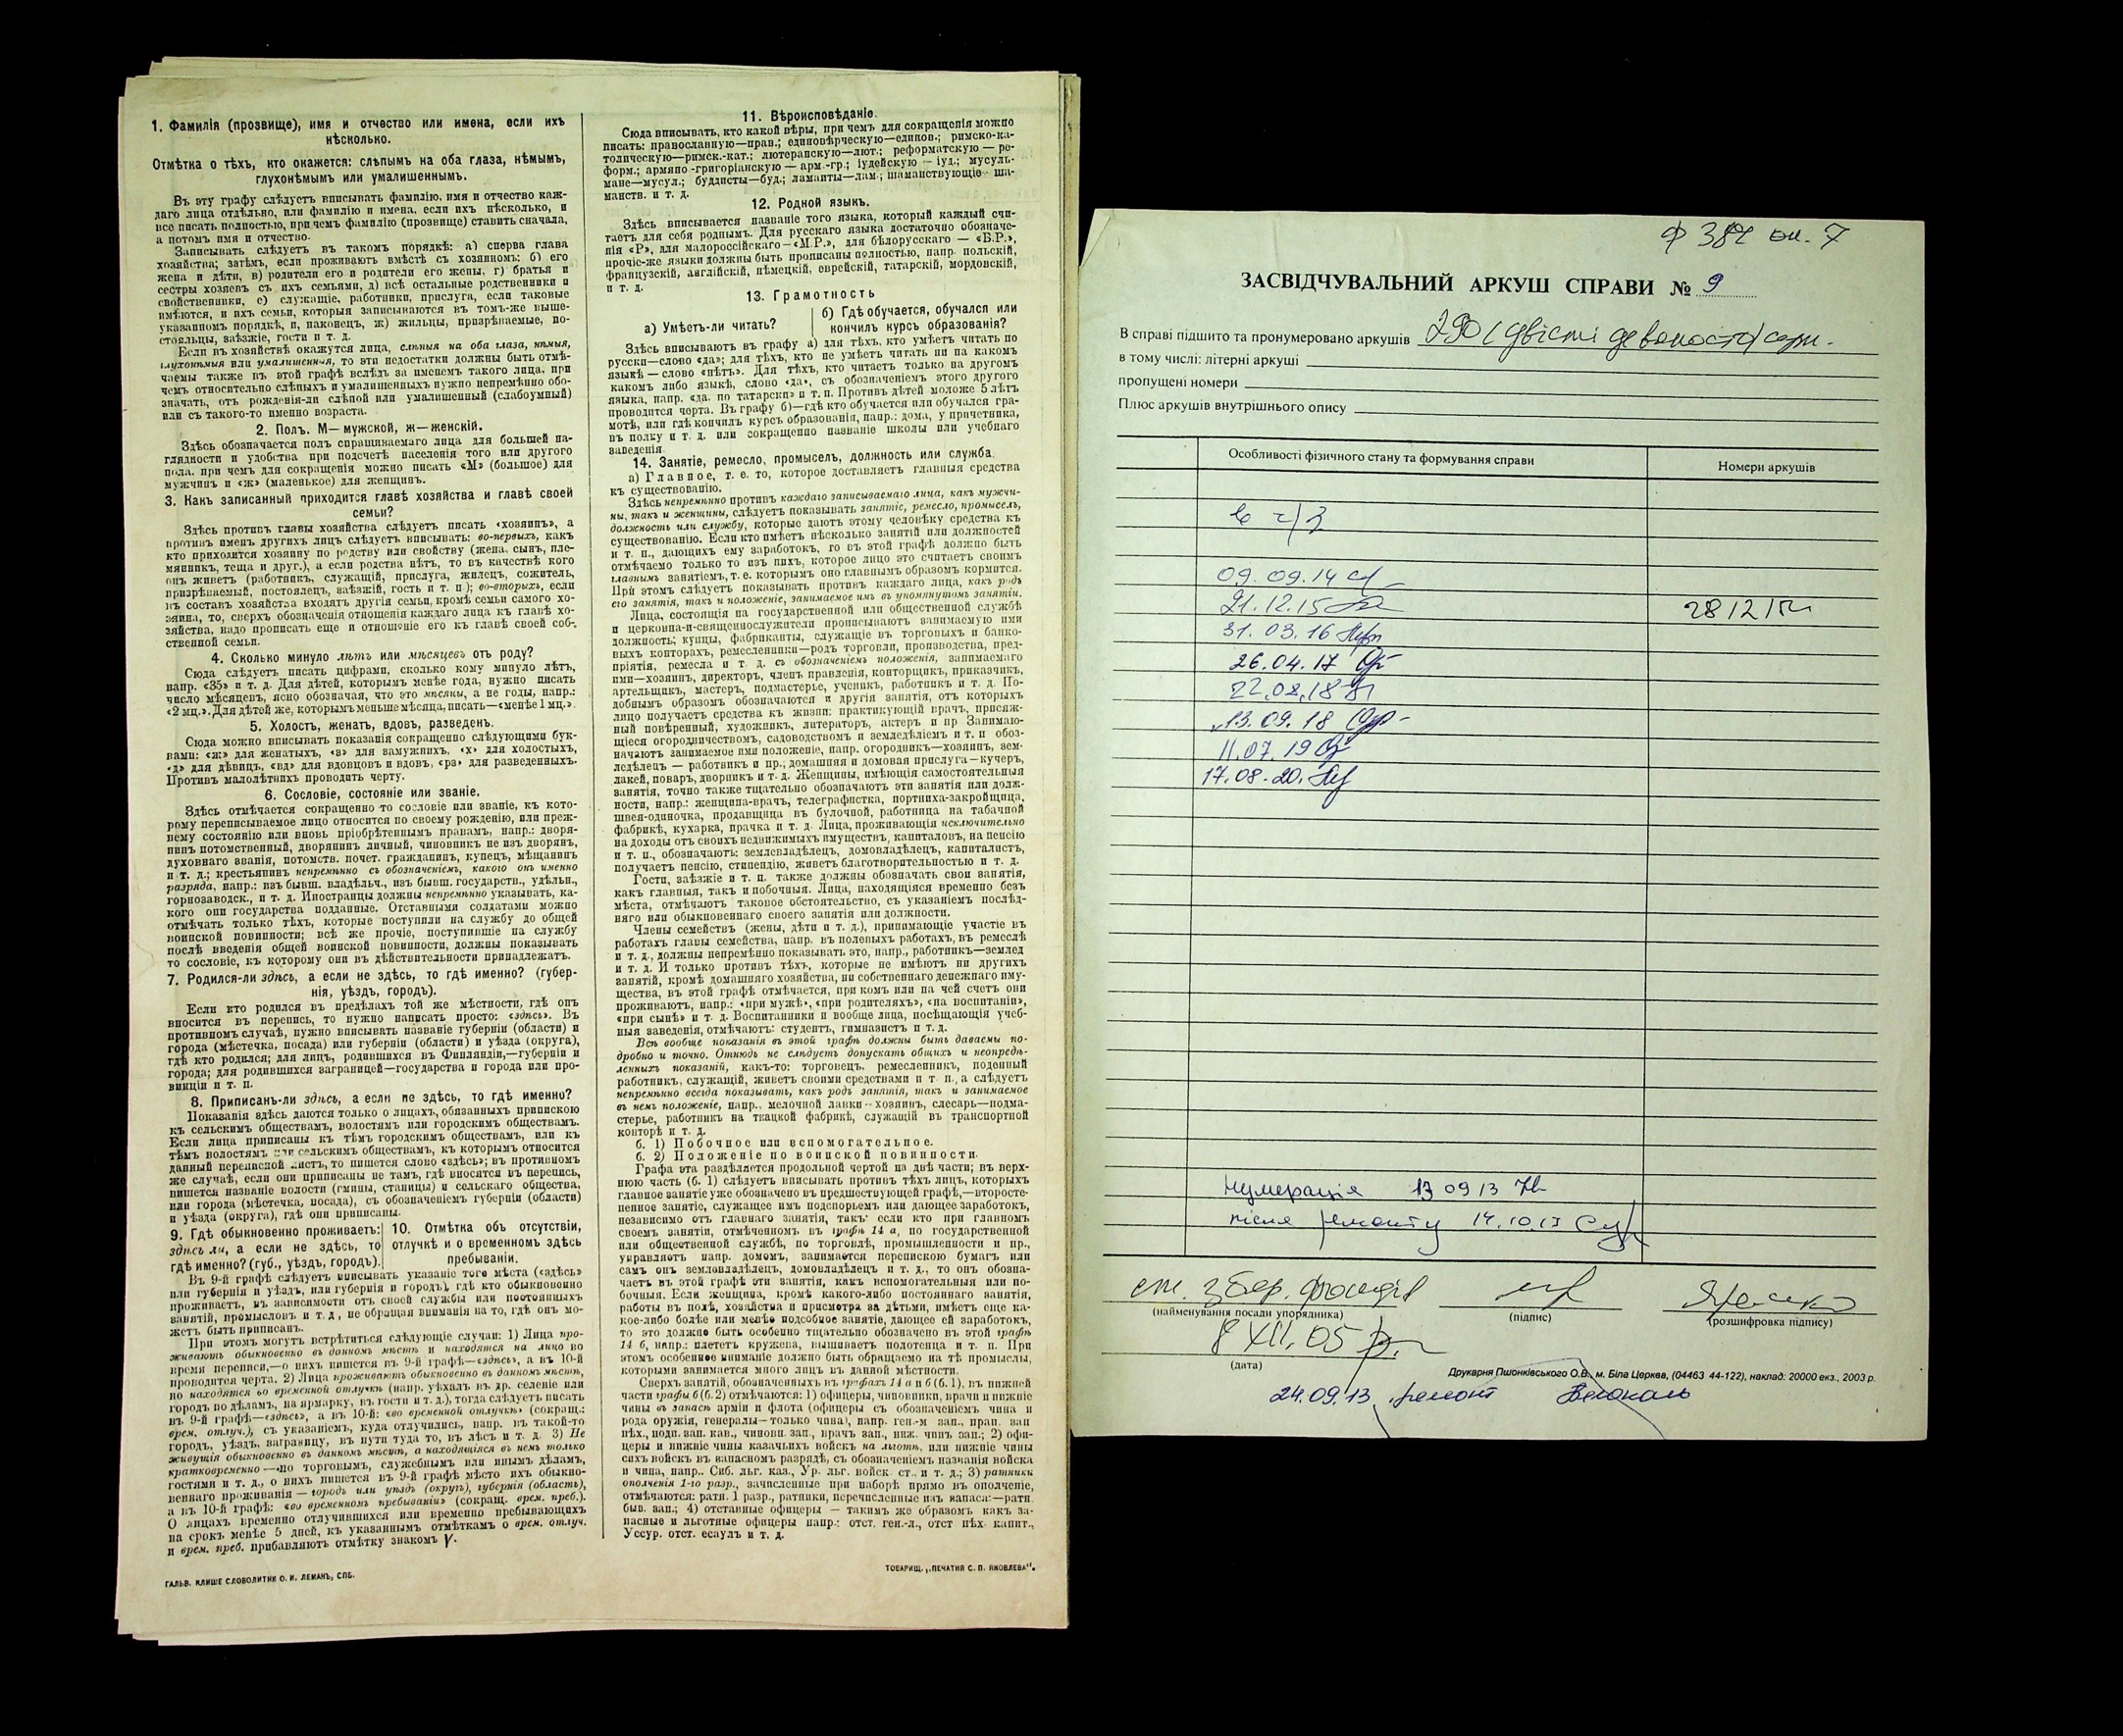 1. Фамилія (прозвище), имя и отчество или имена, если ихъ
нѣсколько.
Отмѣтка о тѣхъ, кто окажется: слѣпымъ на оба глаза, нѣмымъ,
глухонѣмымъ или умалишеннымъ.
Въ эту графу слѣдуетъ вписывать фамилію, имя и отчество каж-
даго лица отдѣльно, или фамилію и имена, если ихъ нѣсколько, и
все писать полностью, при чемъ фамилію (прозвище) ставить сначала,
а потомъ имя и отчество.
Записывать слѣдуетъ въ такомъ порядкѣ: а) сперва глава
хозяйства; затѣмъ, если проживаютъ вмѣстѣ съ хозяиномъ: б) его
жена и дѣти, в) родители его и родители его жены, г) братья и
сестры хозяевъ съ ихъ семьями, д) всѣ остальные родственники и
свойственники, е) служащіе, работники, прислуга, если таковые
имѣются, и ихъ семьи, которыя записываются въ томъ-же выше-
указанномъ порядкѣ, и, наконецъ, ж) жильцы, призрѣваемые, по-
стояльцы, заѣзжіе, гости и т. д.
Если въ хозяйствѣ окажутся лица, слѣпыя на оба глаза, нѣмыя,
глухонѣмыя или умалишенныя, то эти недостатки должны быть отмѣ-
чаемы также въ этой графѣ вслѣдъ за именемъ такого лица, при
чемъ относительно слѣпыхъ и умалишенныхъ нужно непремѣнно обо-
значать, отъ рожденія-ли слѣпой или умалишенный (слабоумный)
или съ такого-то именно возраста.
2. Полъ. М—мужской, ж—женскій.
Здѣсь обозначается полъ спрашиваемаго лица для большей на-
глядности и удобства при подсчетѣ населенія того или другого
пола, при чемъ для сокращенія можно писать «М» (большое) для
мужчинъ и «ж» (маленькое) для женщинъ.
3. Какъ записанный приходится главѣ хозяйства и главѣ своей
семьи?
Здѣсь противъ главы хозяйства слѣдуетъ писать «хозяинъ», а
противъ именъ другихъ лицъ слѣдуетъ вписывать: во-первыхъ, какъ
кто приходится хозяину по родству или свойству (жена, сынъ, пле-
мянникъ, теща и друг.), а если родства нѣтъ, то въ качествѣ кого
онъ живетъ (работникъ, служащій, прислуга, жилецъ, сожитель,
призрѣваемый, постоялецъ, заѣзжій, гость и т. п.); во-вторыхъ, если
въ составъ хозяйства входятъ другія семьи, кромѣ семьи самого хо-
зяина, то, сверхъ обозначенія отношенія каждаго лица къ главѣ хо-
зяйства, надо прописать еще и отношеніе его къ главѣ своей соб-
ственной семьи.
4. Сколько минуло лѣтъ или мѣсяцевъ отъ роду?
Сюда слѣдуетъ писать цифрами, сколько кому минуло лѣтъ,
напр. «35» и т. д. Для дѣтей, которымъ менѣе года, нужно писать
число мѣсяцевъ, ясно обозначая, что это мѣсяцы, а не годы, напр.:
«2 мц.». Для дѣтей же, которымъ меньше мѣсяца, писать—«менѣе 1 мц.».
5. Холостъ, женатъ, вдовъ, разведенъ.
Сюда можно вписывать показанія сокращенно слѣдующими бук-
вами: «ж» для женатыхъ, «з» для замужнихъ, «х» для холостыхъ,
«д» для дѣвицъ, «вд» для вдовцовъ и вдовъ, «рз» для разведенныхъ.
Противъ малолѣтнихъ проводить черту.
6. Сословіе, состояніе или званіе.
Здѣсь отмѣчается сокращенно то сословіе или званіе, къ кото-
рому переписываемое лицо относится по своему рожденію, или преж-
нему состоянію или вновь пріобрѣтеннымъ правамъ, напр.: дворя-
нинъ потомственный, дворянинъ личный, чиновникъ не изъ дворянъ,
духовнаго званія, потомств. почет. гражданинъ, купецъ, мѣщанинъ
и т. д.; крестьянинъ непремѣнно съ обозначеніемъ, какого онъ именно
разряда, напр.: изъ бывш. владѣльч., изъ бывш. государств., удѣльн.,
горнозаводск., и т. д. Иностранцы должны непремѣнно указывать, ка-
кого они государства подданные. Отставными солдатами можно
отмѣчать только тѣхъ, которые поступили на службу до общей
воинской повинности; всѣ же прочіе, поступившіе на службу
послѣ введенія общей воинской повинности, должны показывать
то сословіе, къ которому они въ дѣйствительности принадлежатъ.
7. Родился-ли здѣсь, а если не здѣсь, то гдѣ именно? (губер-
нія, уѣздъ, городъ).
Если кто родился въ предѣлахъ той же мѣстности, гдѣ онъ
вносится въ перепись, то нужно написать просто: «здѣсь». Въ
противномъ случаѣ, нужно вписывать названіе губерніи (области) и
города (мѣстечка, посада) или губерніи (области) и уѣзда (округа),
гдѣ кто родился; для лицъ, родившихся въ Финляндіи,—губерніи и
города; для родившихся заграницей—государства и города или про-
винціи и т. п.
8. Приписанъ-ли здѣсь, а если не здѣсь, то гдѣ именно?
Показанія здѣсь даются только о лицахъ, обязанныхъ припискою
къ сельскимъ обществамъ, волостямъ или городскимъ обществамъ.
Если лица приписаны къ тѣмъ городскимъ обществамъ, или къ
тѣмъ волостямъ или сельскимъ обществамъ, къ которымъ относится
данный переписной листъ, то пишется слово «здѣсь»; въ противномъ
же случаѣ, если они приписаны не тамъ, гдѣ вносятся въ перепись,
пишется названіе волости (гмины, станицы) и сельскаго общества,
или города (мѣстечка, посада), съ обозначеніемъ губерніи (области)
и уѣзда (округа), гдѣ они приписаны.
9. Гдѣ обыкновенно проживаетъ:
здѣсь ли, а если не здѣсь, то
гдѣ именно? (губ., уѣздъ, городъ).
10. Отмѣтка объ отсутствіи,
отлучкѣ и о временномъ здѣсь
пребываніи.
Въ 9-й графѣ слѣдуетъ вписывать указаніе того мѣста («здѣсь»
или губернія и уѣздъ, или губернія и городъ), гдѣ кто обыкновенно
проживаетъ, въ зависимости отъ своей службы или постоянныхъ
занятій, промысловъ и т. д., не обращая вниманія на то, гдѣ онъ мо-
жетъ быть приписанъ.
При этомъ могутъ встрѣтиться слѣдующіе случаи: 1) Лица про-
живаютъ обыкновенно въ данномъ мѣстѣ и находятся на лицо во
время переписи,—о нихъ пишется въ 9-й графѣ—«здѣсь», а въ 10-й
проводится черта. 2) Лица проживаютъ обыкновенно въ данномъ мѣстѣ,
но находятся во временной отлучкѣ (напр. уѣхалъ въ др. селеніе или
городъ по дѣламъ, на ярмарку, въ гости и т. д.), тогда слѣдуетъ писать
въ 9-й графѣ—«здѣсь», а въ 10-й: «во временной отлучкѣ» (сокращ.:
врем. отлуч.), съ указаніемъ, куда отлучились, напр. въ такой-то
городъ, уѣздъ, заграницу, въ пути туда то, въ лѣсъ и т. д. 3) Не
живущія обыкновенно въ данномъ мѣстѣ, а находящіяся въ немъ только
кратковременно—по торговымъ, служебнымъ или инымъ дѣламъ,
гостями и т. д., о нихъ пишется въ 9-й графѣ мѣсто ихъ обыкно-
веннаго проживанія — городъ или уѣздъ (округъ), губернія (область),
а въ 10-й графѣ: «во временномъ пребываніи» (сокращ. врем. преб.).
О лицахъ временно отлучившихся или временно пребывающихъ
на срокъ менѣе 5 дней, къ указаннымъ отмѣткамъ о врем. отлуч.
и врем. преб. прибавляютъ отмѣтку знакомъ V.
ГАЛЬВ. КЛИШЕ СЛОВОЛИТНИ О. И. ЛЕМАНЪ, СПБ.
11. Вѣроисповѣданіе.
Сюда вписывать, кто какой вѣры, при чемъ для сокращенія можно
писать: православную—прав.; единовѣрческую—единов.; римско-ка-
толическую—римск.-кат.; лютеранскую—лют.; реформатскую — ре-
форм.; армяно-григоріанскую — арм.-гр.; іудейскую — іуд.; мусуль-
мане—мусул.; буддисты—буд.; ламаиты—лам.; шаманствующіе- ша-
манств. и т. д.
12. Родной языкъ.
Здѣсь вписывается названіе того языка, который каждый счи-
таетъ для себя роднымъ. Для русскаго языка достаточно обозначе-
нія «Р», для малороссійскаго—«М.Р.», для бѣлорусскаго — «Б.Р.»,
прочіе-же языки должны быть прописаны полностью, напр. польскій,
французскій, англійскій, нѣмецкій, еврейскій, татарскій, мордовскій,
и т. д.
13. Грамотность
а) Умѣетъ-ли читать?
б) Гдѣ обучается, обучался или
кончилъ курсъ образованія?
Здѣсь вписываютъ въ графу а) для тѣхъ, кто умѣетъ читать по
русски—слово «да»; для тѣхъ, кто не умѣетъ читать ни на какомъ
языкѣ — слово «нѣтъ». Для тѣхъ, кто читаетъ только на другомъ
какомъ либо языкѣ, слово «да», съ обозначеніемъ этого другого
языка, напр. «да, по татарски» и т. п. Противъ дѣтей моложе 5 лѣтъ
проводится черта. Въ графу б)—гдѣ кто обучается или обучался гра-
мотѣ, или гдѣ кончилъ курсъ образованія, напр.: дома, у причетника,
въ полку и т. д. или сокращенно названіе школы или учебнаго
заведенія.
14. Занятіе, ремесло, промыселъ, должность или служба.
а) Главное, т. е. то, которое доставляетъ главныя средства
къ существованію.
Здѣсь непремѣнно противъ каждаго записываемаго лица, какъ мужчи-
ны, такъ и женщины, слѣдуетъ показывать занятіе, ремесло, промыселъ,
должность или службу, которые даютъ этому человѣку средства къ
существованію. Если кто имѣетъ нѣсколько занятій или должностей
и т. п., дающихъ ему заработокъ, то въ этой графѣ должно быть
отмѣчаемо только то изъ нихъ, которое лицо это считаетъ своимъ
главнымъ занятіемъ, т. е. которымъ оно главнымъ образомъ кормится.
При этомъ слѣдуетъ показывать противъ каждаго лица, какъ родъ
его занятія, такъ и положеніе, занимаемое имъ въ упомянутомъ занятіи.
Лица, состоящія на государственной или общественной службѣ
и церковно-и-священнослужители прописываютъ занимаемую ими
должность; купцы, фабриканты, служащіе въ торговыхъ и банко-
выхъ конторахъ, ремесленники—родъ торговли, производства, пред-
пріятія, ремесла и т. д. съ обозначеніемъ положенія, занимаемаго
ими—хозяинъ, директоръ, членъ правленія, конторщикъ, приказчикъ,
артельщикъ, мастеръ, подмастерье, ученикъ, работникъ и т. д. По-
добнымъ образомъ обозначаются и другія занятія, отъ которыхъ
лицо получаетъ средства къ жизни: практикующій врачъ, присяж-
ный повѣренный, художникъ, литераторъ, актеръ и пр Занимаю-
щіеся огородничествомъ, садоводствомъ и земледѣліемъ и т. п обоз-
начаютъ занимаемое ими положеніе, напр. огородникъ—хозяинъ, зем-
ледѣлецъ — работникъ и пр.; домашняя и домовая прислуга—кучеръ,
лакей, поваръ, дворникъ и т. д. Женщины, имѣющія самостоятельныя
занятія, точно также тщательно обозначаютъ эти занятія или долж-
ности, напр.: женщина-врачъ, телеграфистка, портниха-закройщица,
швея-одиночка, продавщица въ булочной, работница на табачной
фабрикѣ, кухарка, прачка и т. д. Лица, проживающія исключительно
на доходы отъ своихъ недвижимыхъ имуществъ, капиталовъ, на пенсію
и т. п., обозначаютъ: землевладѣлецъ, домовладѣлецъ, капиталистъ,
получаетъ пенсію, стипендію, живетъ благотворительностью и т. д.
Гости, заѣзжіе и т. п. также должны обозначать свои занятія,
какъ главныя, такъ и побочныя. Лица, находящіяся временно безъ
мѣста, отмѣчаютъ таковое обстоятельство, съ указаніемъ послѣд-
няго или обыкновеннаго своего занятія или должности.
Члены семействъ (жены, дѣти и т. д.), принимающіе участіе въ
работахъ главы семейства, напр. въ полевыхъ работахъ, въ ремеслѣ
и т. д., должны непремѣнно показывать это, напр., работникъ—землед
и т. д. И только противъ тѣхъ, которые не имѣютъ ни другихъ
занятій, кромѣ домашняго хозяйства, ни собственнаго денежнаго иму-
щества, въ этой графѣ отмѣчается, при комъ или на чей счетъ они
проживаютъ, напр.: «при мужѣ», «при родителяхъ», «на воспитаніи»,
«при сынѣ» и т. д. Воспитанники и вообще лица, посѣщающія учеб-
ныя заведенія, отмѣчаютъ: студентъ, гимназистъ и т. д.
Всѣ вообще показанія въ этой графѣ должны быть даваемы по-
дробно и точно. Отнюдь не слѣдуетъ допускать общихъ и неопредѣ-
ленныхъ показаній, какъ-то: торговецъ, ремесленникъ, поденный
работникъ, служащій, живетъ своими средствами и т. п., а слѣдуетъ
непремѣнно всегда показывать, какъ родъ занятія, такъ и занимаемое
въ немъ положеніе, напр., мелочной лавки—хозяинъ, слесарь—подма-
стерье, работникъ на ткацкой фабрикѣ, служащій въ транспортной
конторѣ и т. д.
б. 1) Побочное или вспомогательное.
б. 2) Положеніе по воинской повинности.
Графа эта раздѣляется продольной чертой на двѣ части; въ верх-
нюю часть (б. 1) слѣдуетъ вписывать противъ тѣхъ лицъ, которыхъ
главное занятіе уже обозначено въ предшествующей графѣ,—второсте-
пенное занятіе, служащее имъ подспорьемъ или дающее заработокъ,
независимо отъ главнаго занятія, такъ: если кто при главномъ
своемъ занятіи, отмѣченномъ въ графѣ 14 а, по государственной
или общественной службѣ, по торговлѣ, промышленности и пр.,
управляетъ напр. домомъ, занимается перепискою бумагъ или
самъ онъ землевладѣлецъ, домовладѣлецъ и т. д., то онъ обозна-
чаетъ въ этой графѣ эти занятія, какъ вспомогательныя или по-
бочныя. Если женщина, кромѣ какого-либо постояннаго занятія,
работы въ полѣ, хозяйства и присмотра за дѣтьми, имѣетъ еще ка-
кое-либо болѣе или менѣе подсобное занятіе, дающее ей заработокъ,
то это должно быть особенно тщательно обозначено въ этой графѣ
14 б, напр.: плететъ кружева, вышиваетъ полотенца и т. п. При
этомъ особенное вниманіе должно быть обращаемо на тѣ промыслы,
которыми занимается много лицъ въ данной мѣстности.
Сверхъ занятій, обозначенныхъ въ графахъ 14 а и б (б. 1), въ нижней
части графы б (б. 2) отмѣчаются: 1) офицеры, чиновники, врачи и нижніе
чины въ запасѣ арміи и флота (офицеры съ обозначеніемъ чина и
рода оружія, генералы—только чина), напр. ген.-м зап., прап. зап
пѣх., подп. зап. кав., чиновн. зап., врачъ зап., ниж. чинъ зап.; 2) офи-
церы и нижніе чины казачьихъ войскъ на льготѣ, или нижніе чины
сихъ войскъ въ запасномъ разрядѣ, съ обозначеніемъ названія войска
и чина, напр.. Сиб. льг. каз., Ур. льг. войск. ст.. и т. д.; 3) ратники
ополченія 1-го разр., зачисленные при наборѣ прямо въ ополченіе,
отмѣчаются: ратн. 1 разр., ратники, перечисленные изъ запаса:—ратн.
быв. зап.; 4) отставные офицеры — такимъ же образомъ какъ за-
пасные и льготные офицеры напр.: отст. ген.-л., отст пѣх. капит.,
Уссур. отст. есаулъ и т. д.
ТОВАРИЩ. „ПЕЧАТНЯ С. П. ЯКОВЛЕВА“.
Ф 384 оп. 7
ЗАСВІДЧУВАЛЬНИЙ АРКУШ СПРАВИ № 9
В справі підшито та пронумеровано аркушів 290 (двісті девяносто)
в тому числі: літерні аркуші
пропущені номери
Плюс аркушів внутрішнього опису
Особливості фізичного стану та формування справи
Номери аркушів
09.09.14
21.12.15
31.03.16
26.04.17
22.08.18
13.09.18
11.07.19
17.08.20.
Нумерація 13 09 13
після ремонту 14.10.13
ст. збер. фондів
Яременко
(найменування посади упорядника)
(підпис)
(розшифровка підпису)
8 XII. 05 р.
(дата)
Друкарня Пшонківського О.В., м. Біла Церква, (04463 44-122), наклад: 20000 екз., 2003 р.
24.09.13 ремонт